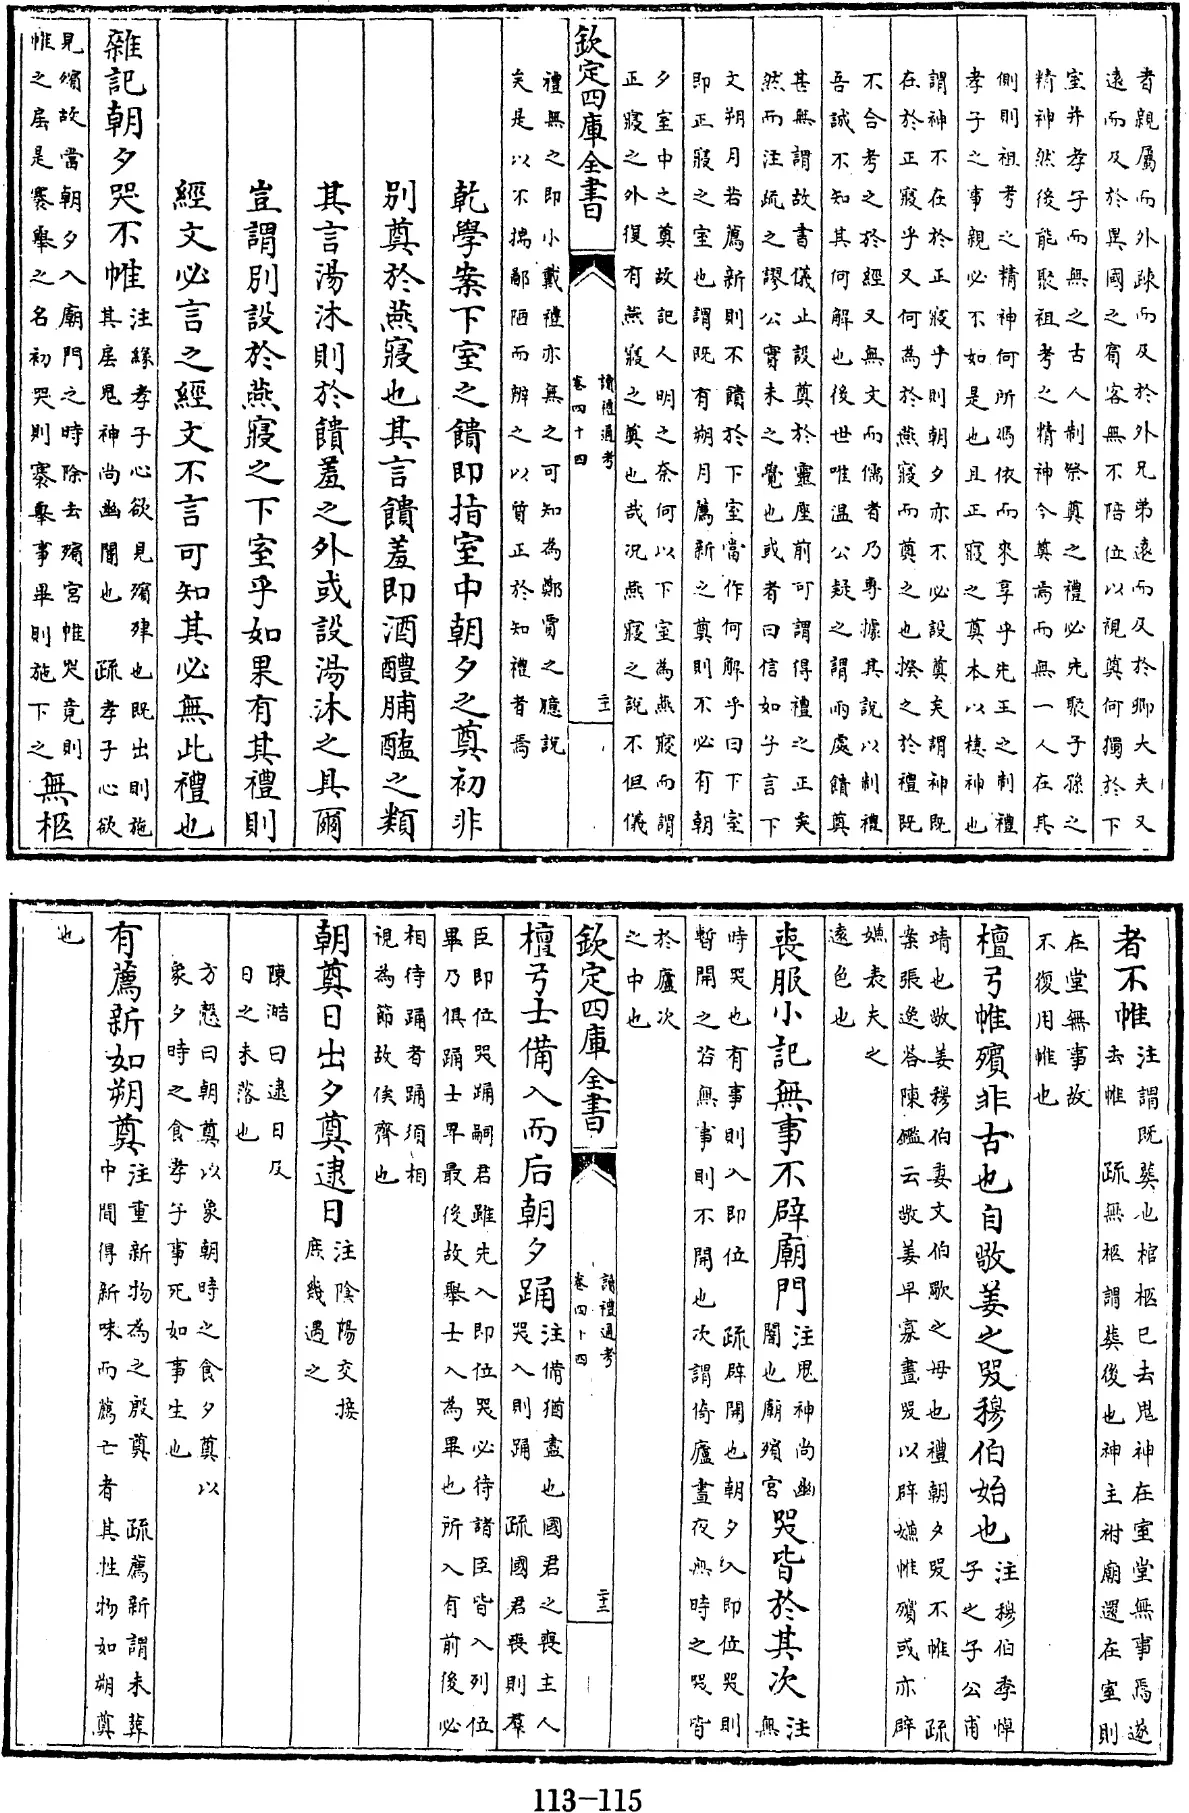 者親屬而外疎而及於外兄弟遠而及於鄉大夫又
遠而及於異國之賓客無不陪位以視奠何獨於下
室幷孝子而無之古人制祭奠之禮必先聚子孫之
精神然後能聚祖考之精神今奠焉而無一人在其
側則祖考之精神何所馮依而來享乎先王之制禮
孝子之事親必不如是也且正寢之奠本以棲神也
謂神不在於正寢乎則朝夕亦不必設奠矣謂神既
在於正寢乎又何為於燕寢而奠之也揆之於禮既
不合考之於經又無文而儒者乃專據其說以制禮
吾誠不知其何解也後世唯溫公疑之謂兩處饋奠
甚無謂故書儀止設奠於靈座前可謂得禮之正矣
然而注疏之謬公實未之覺也或者曰信如子言下
文朔月若薦新則不饋於下室當作何解乎曰下室
即正寢之室也謂既有朔月薦新之奠則不必有朝
夕室中之奠故記人明之奈何以下室為燕寢而謂
正寢之外復有燕寢之奠也哉況燕寢之說不但儀
欽定四庫全書
讀禮通考
卷四十四
二十二
禮無之即小戴禮亦無之可知為鄭賈之臆說
矣是以不揣鄙陋而辨之以質正於知禮者焉
乾學案下室之饋即指室中朝夕之奠初非
別奠於燕寢也其言饋羞即酒醴脯醢之類
其言湯沐則於饋羞之外或設湯沐之具爾
豈謂別設於燕寢之下室乎如果有其禮則
經文必言之經文不言可知其必無此禮也
雜記朝夕哭不帷注緣孝子心欲見殯肂也既出則施
其扃鬼神尚幽闇也 疏孝子心欲
見殯故當朝夕入廟門之時除去殯宮帷哭竟則
帷之扃是褰舉之名初哭則褰舉事畢則施下之無柩
者不帷注謂既葬也棺柩已去鬼神在室堂無事焉遂
去帷 疏無柩謂葬後也神主祔廟還在室則
在堂無事故
不復用帷也
檀弓帷殯非古也自敬姜之哭穆伯始也注穆伯季悼
子之子公甫
靖也敬姜穆伯妻文伯歜之母也禮朝夕哭不帷 疏
案張逸答陳鑑云敬姜早寡晝哭以辟嫌帷殯或亦辟
嫌表夫之
遠色也
喪服小記無事不辟廟門注鬼神尚幽
闇也廟殯宮哭皆於其次注
無
時哭也有事則入即位 疏辟開也朝夕入即位哭則
暫開之若無事則不開也次謂倚廬晝夜無時之哭皆
於廬次
之中也
欽定四庫全書
讀禮通考
卷四十四
二十三
檀弓士備入而后朝夕踊注備猶盡也國君之喪主人
哭入則踊 疏國君喪則羣
臣即位哭踊嗣君雖先入即位哭必待諸臣皆入列位
畢乃俱踊士畢最後故舉士入為畢也所入有前後必
相待踊者踊須相
視為節故俟齊也
朝奠日出夕奠逮日注陰陽交接
庶幾遇之
陳澔曰逮日及
日之未落也
方慤曰朝奠以象朝時之食夕奠以
象夕時之食孝子事死如事生也
有薦新如朔奠注重新物為之殷奠 疏薦新謂未葬
中間得新味而薦亡者其牲物如朔奠
也
113-115